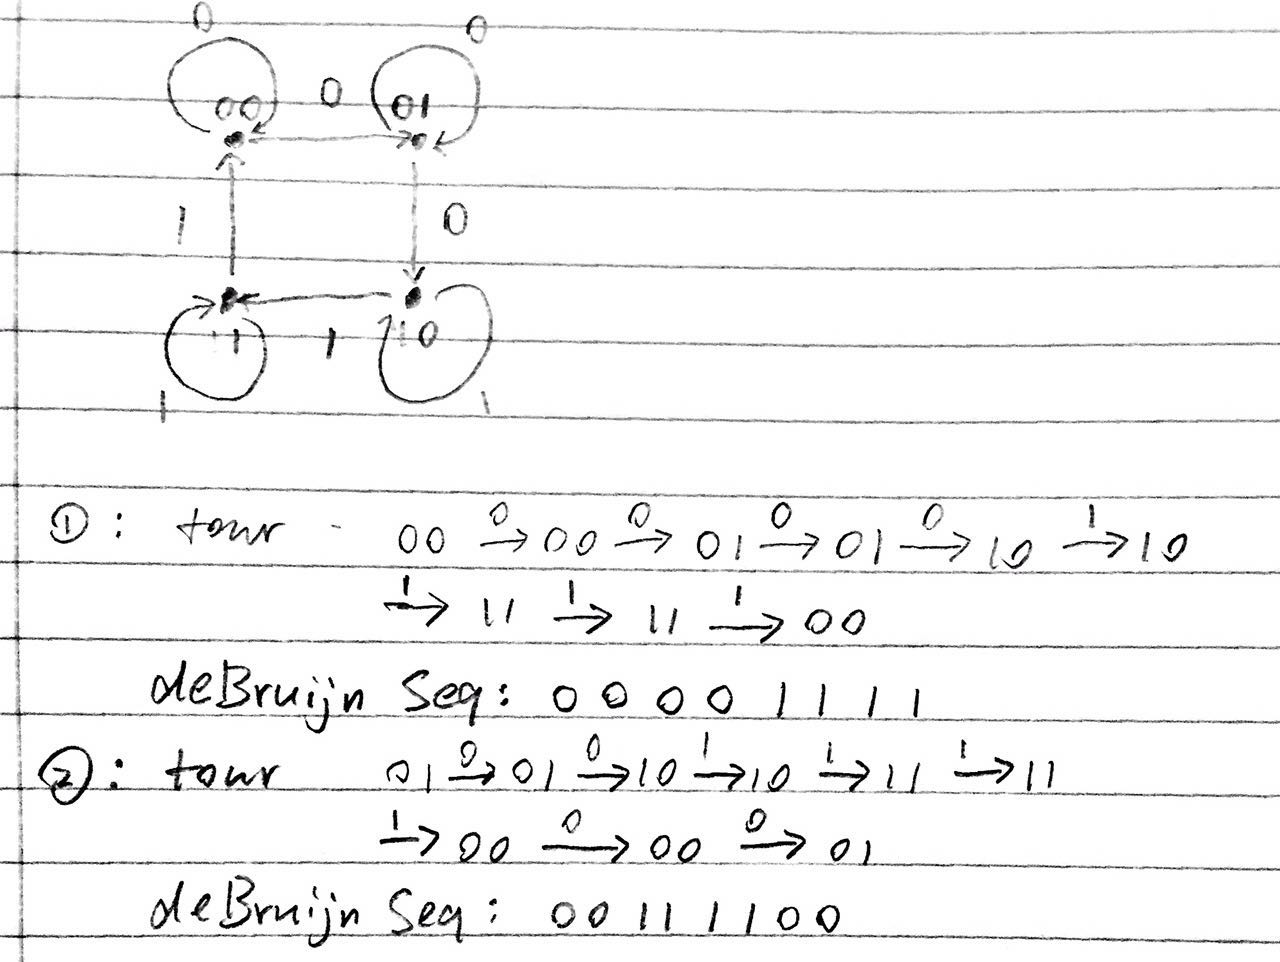 0 0
00 0 01
1 0
11 1 10
1 1
①: tour - 00 0→ 00 0→ 01 0→ 01 0→ 10 1→ 10
1→ 11 1→ 11 1→ 00
deBruijn Seq: 0 0 0 0 1 1 1 1
②: tour 01 0→ 01 0→ 10 1→ 10 1→ 11 1→ 11
1→ 00 0→ 00 0→ 01
deBruijn Seq: 0 0 1 1 1 1 0 0